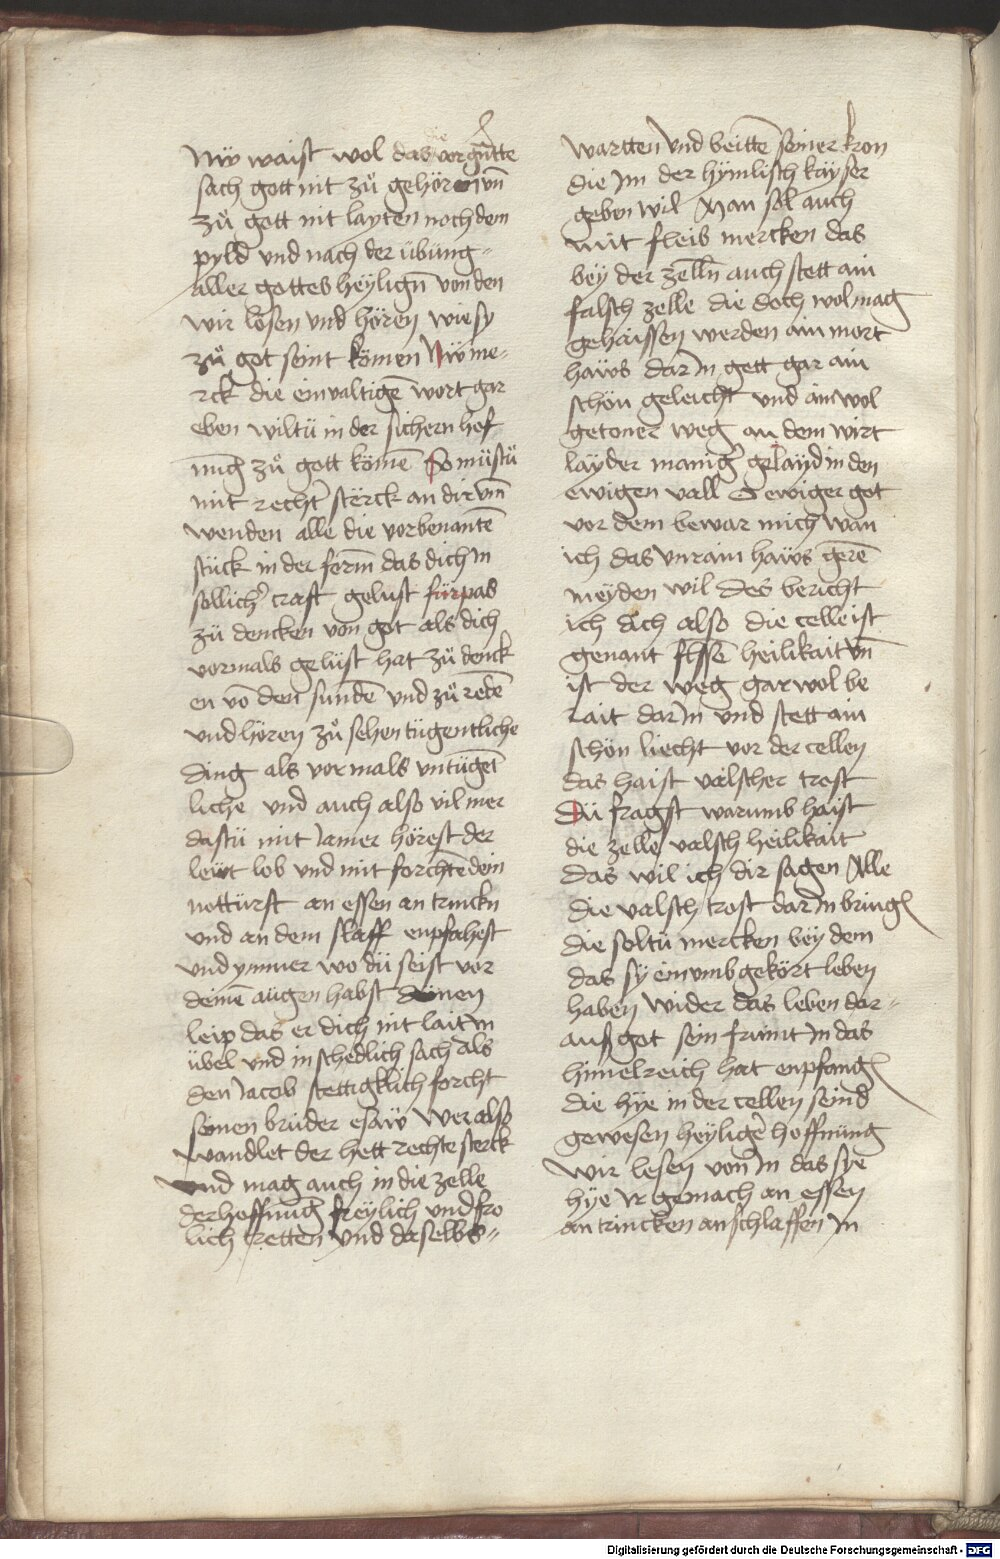 Nw waist wol das die vorgnꝛte
sach gott nit zů gehören vn̄
zů gott nit layten noch dem
pyld vnd nach der übung
aller gottes heylign̄ von den
wir lesen vnd hören wie sy
zů got seint kömen Nw me-
rck die einvaltigē wort gar
eben wiltü in der sichern hof
nung zů gott kömē So müstü
mit rechtʼ sterck an dir vm̄
wenden alle die vorbenantē
stück in der form̄ das dich in
sollichʼ craft gelust fürpas
zü dencken von got als dich
vormals gelüst hat zů denck
en vō den sundē vnd zů redē
vnd hören zů sehen tügentliche
ding als vormals vntügēt
liche vnd auch also vil mer
dastü mit Jamer hörest der
leüt lob vnd mit forchtē dein
notturft an essen an trinckn
vnd an dem slaff enpfahest
vnd ymmer wo dü seist vor
deinē augen habst deinen
leip das er dich nit lait in
übel vnd in schedlich sach als
den Jacob stettigklich forcht
seinen brüder esaw Wer also
wandlet der hett rechte sterck
vnd mag auch in die zelle
der hoffnung freylich vnd fro
lich tretten vnd daselbs
wartten vnd beittē seiner kron
die im der hymlisch kayser
geben wil Man sol auch
mit fleis mercken das
bey der zelln̄ auch stett ain
falsch zelle die doch wol mag
gehaissen werden ain mort
haws dar in gett gar ain
schön geleicht vnd ain wol
getoner weg an dem wirt
layder manigʼ gelayd in den
ewigen vall O ewiger got
vor dem bewar mich wan
ich das vnrain haws gerē
meyden wil Des bericht
ich dich also die celle ist
genant flssē heilikait vn̄
ist der weg gar wol be
rait dar in vnd stett ain
schön liecht vor der cellen
das haist valscher trost
Dü fragst warumb haist
die zelle valsch heilikait
das wil ich dir sagen Alle
die valsch trost dar in bringt
die soltü mercken bey dem
das sy ein vmbgekört leben
haben wider das leben dar
auß got sein frünt in das
himelreich hat enpfangen
die hye in der cellen seind
gewesen heyligeʼ hoffnüng
Wir lesen von in das sye
hye ir gemach an essen
an trincken an schlaffen in
Digitalisierung gefördert durch die Deutsche Forschungsgemeinschaft - DFG